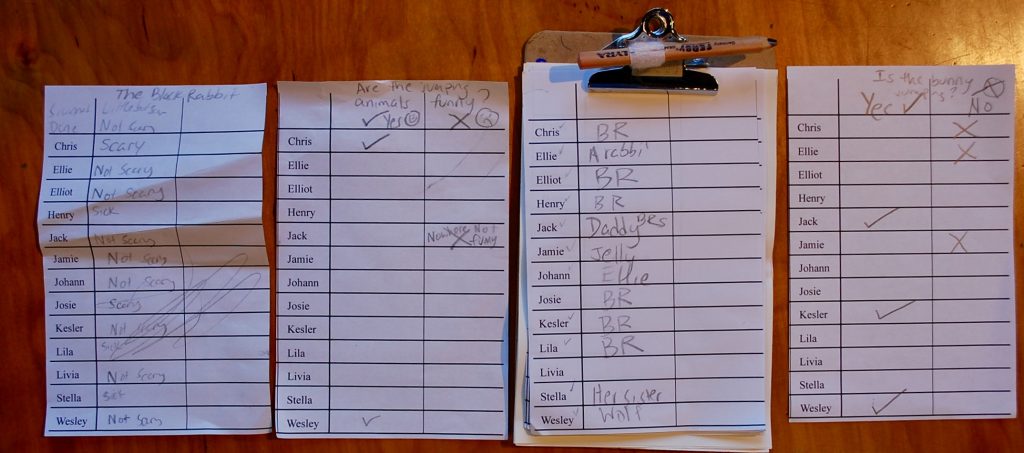 The Black Rabbit
Not Scary
Chris Scary
Ellie Not Scary
Elliot Not Scary
Henry Sick
Jack Not Scary
Jamie Not Scary
Johann Not Scary
Josie Scary
Kesler Not Scary
Lila Sick
Livia Not Scary
Stella Sick
Wesley Not Scary
Are the jumping
animals funny?
✓ Yes X
Chris ✓
Ellie
Elliot
Henry
Jack Not funny X
Jamie
Johann
Josie
Kesler
Lila
Livia
Stella
Wesley ✓
LYRA FERBY Germany
Chris ✓ BR
Ellie ✓ A rabbit
Elliot ✓ BR
Henry ✓ BR
Jack ✓ Daddy
Jamie ✓ Jelly
Johann Ellie
Josie BR
Kesler ✓ BR
Lila ✓ BR
Livia
Stella ✓ Her sister
Wesley ✓ Wolf
Is the bunny
jumping?
Yes ✓ No
Chris X
Ellie X
Elliot
Henry
Jack ✓
Jamie X
Johann
Josie
Kesler ✓
Lila
Livia
Stella
Wesley ✓